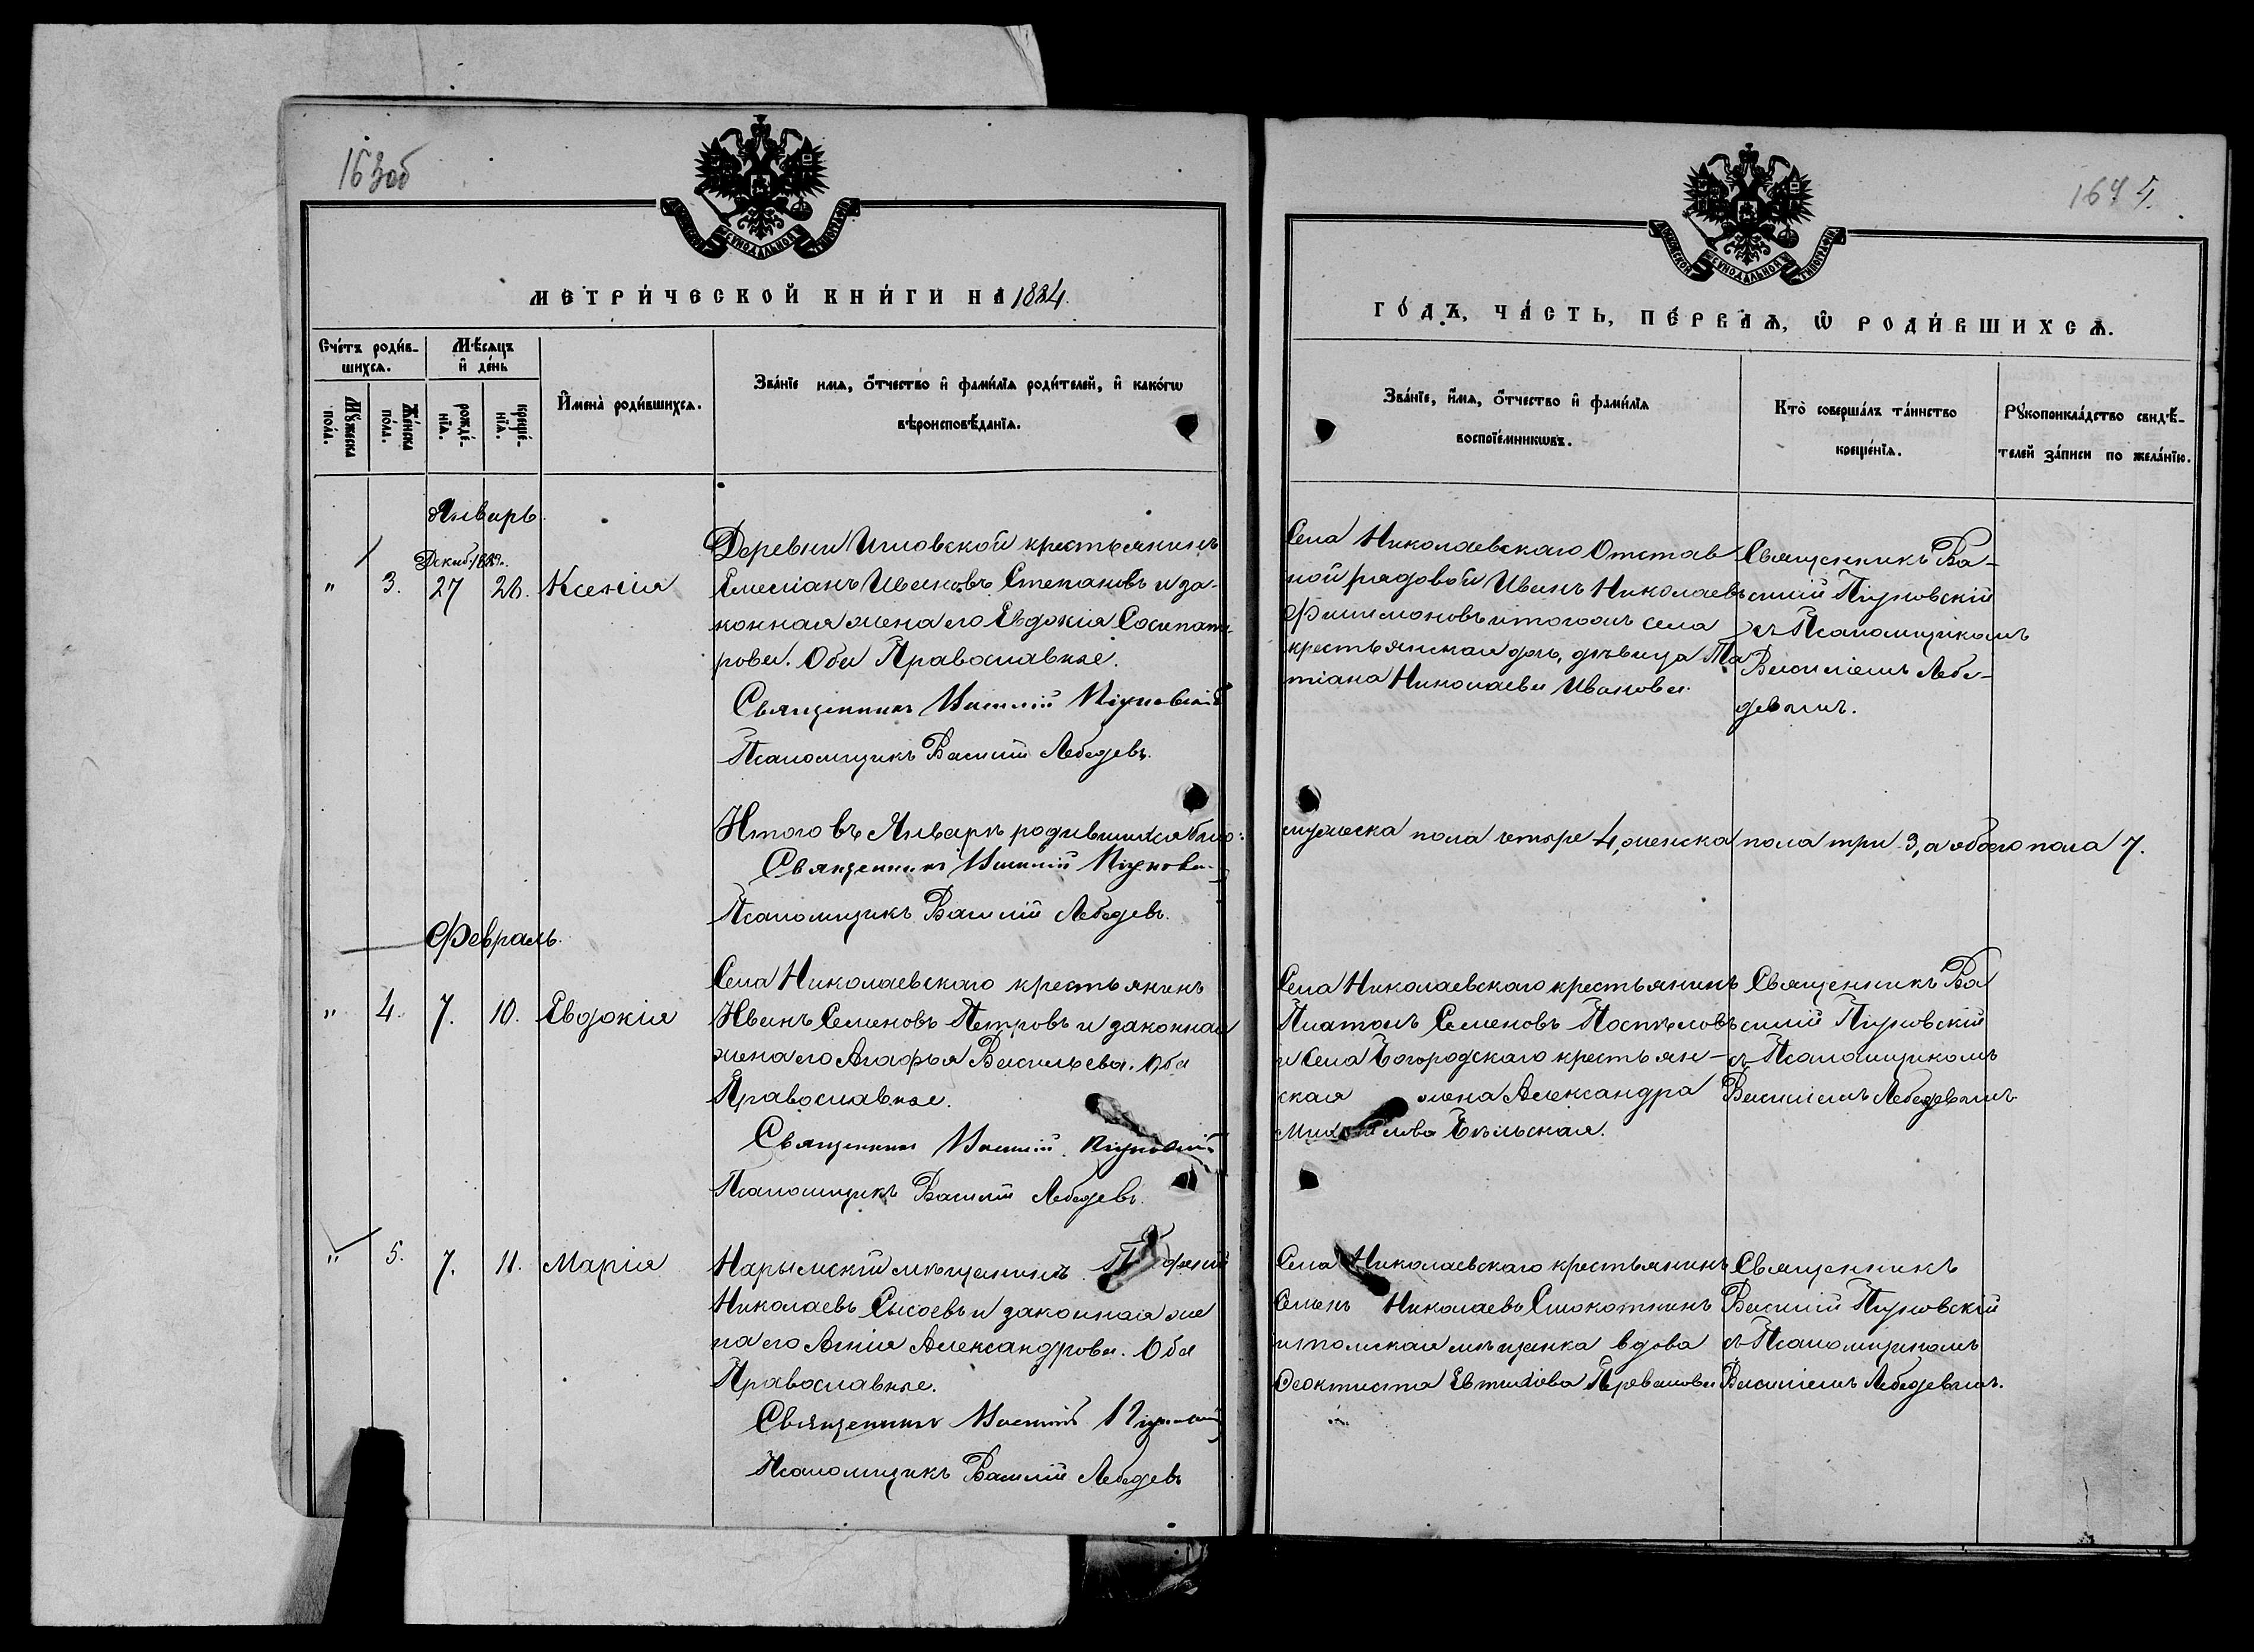 163об
МОСКОВСКОЙ СѴНОДАЛЬНОЙ ТИПОГРАФІИ
МЕТРИ́ЧЕСКОЙ КНИ́ГИ НА 1884.
Сче́тъ роди́в-
шихсѧ.
Мѣ́сяцъ
и҆ де́нь
Мꙋ́жеска
по́ла.
Же́нска
по́ла.
рожде́-
нїѧ.
креще́-
нїѧ.
И҆мена̀ роди́вшихсѧ.
Зва́нїе имѧ, о҆́тчество и҆ фами́лїѧ роди́телей, и҆ како́гѡ
вѣроисповѣ́данїѧ.
Январь.
Декаб.
" 3. 27 28. Ксенія
Деревни крестьянинъ
Емеліанъ Ивановъ Степановъ и за-
конная жена его Евдокія Сосипат-
рова. Оба Православные.
Священникъ Василій
Псаломщикъ Василій Лебедевъ.
Итого въ Январѣ родившихся было:
Священникъ Василій
Псаломщикъ Василій Лебедевъ.
Февраль.
" 4. 7. 10. Евдокія
Села Николаевскаго крестьянинъ
Иванъ Семеновъ Петровъ и законная
жена его Агафья Васильева. Оба
Православные.
Священникъ Василій
Псаломщикъ Василій Лебедевъ.
" 5. 7. 11. Марія
Нарымскій мѣщанинъ
Николаевъ Сысоевъ и законная же
на его Александрова. Оба
Православные.
Священникъ Василій
Псаломщикъ Василій Лебедевъ
164 5.
МОСКОВСКОЙ СѴНОДАЛЬНОЙ ТИПОГРАФІИ
ГО́ДЪ, ЧА́СТЬ, ПЕ́РВАѦ, Ѡ҆ РОДИ́ВШИХСѦ.
Зва́нїе, и҆́мѧ, о҆́тчество и҆ фами́лїѧ
воспрїе́мникѡвъ.
Кто̀ соверша́лъ та́инство
креще́нїѧ.
Рꙋкоприкла́дство свидѣ́-
телей за́писи по жела́нїю.
Села Николаевскаго Отстав
ной рядовой Иванъ Николаевъ
Филимоновъ и тогожъ села
крестьянская дочь, дѣвица Та
тіана Николаева Иванова.
Священникъ Ва-
силій
съ Псаломщикомъ
Василіемъ Лебе-
девымъ.
мужеска пола четыре 4, женска пола три 3, а обоего пола 7.
Села Николаевскаго крестьянинъ
Платонъ Семеновъ Поспѣловъ
и Села Богородскаго крестьян-
ская жена Александра
Михайлова Бѣльская.
Священникъ Ва
силій
съ Псаломщикомъ
Василіемъ Лебедевымъ
Села Николаевскаго крестьянинъ
Семенъ Николаевъ Смокотнинъ
и томская мѣщанка вдова
Феоктиста Евтихіова
Священникъ
Василій
съ Псаломщикомъ
Василіемъ Лебедевымъ.